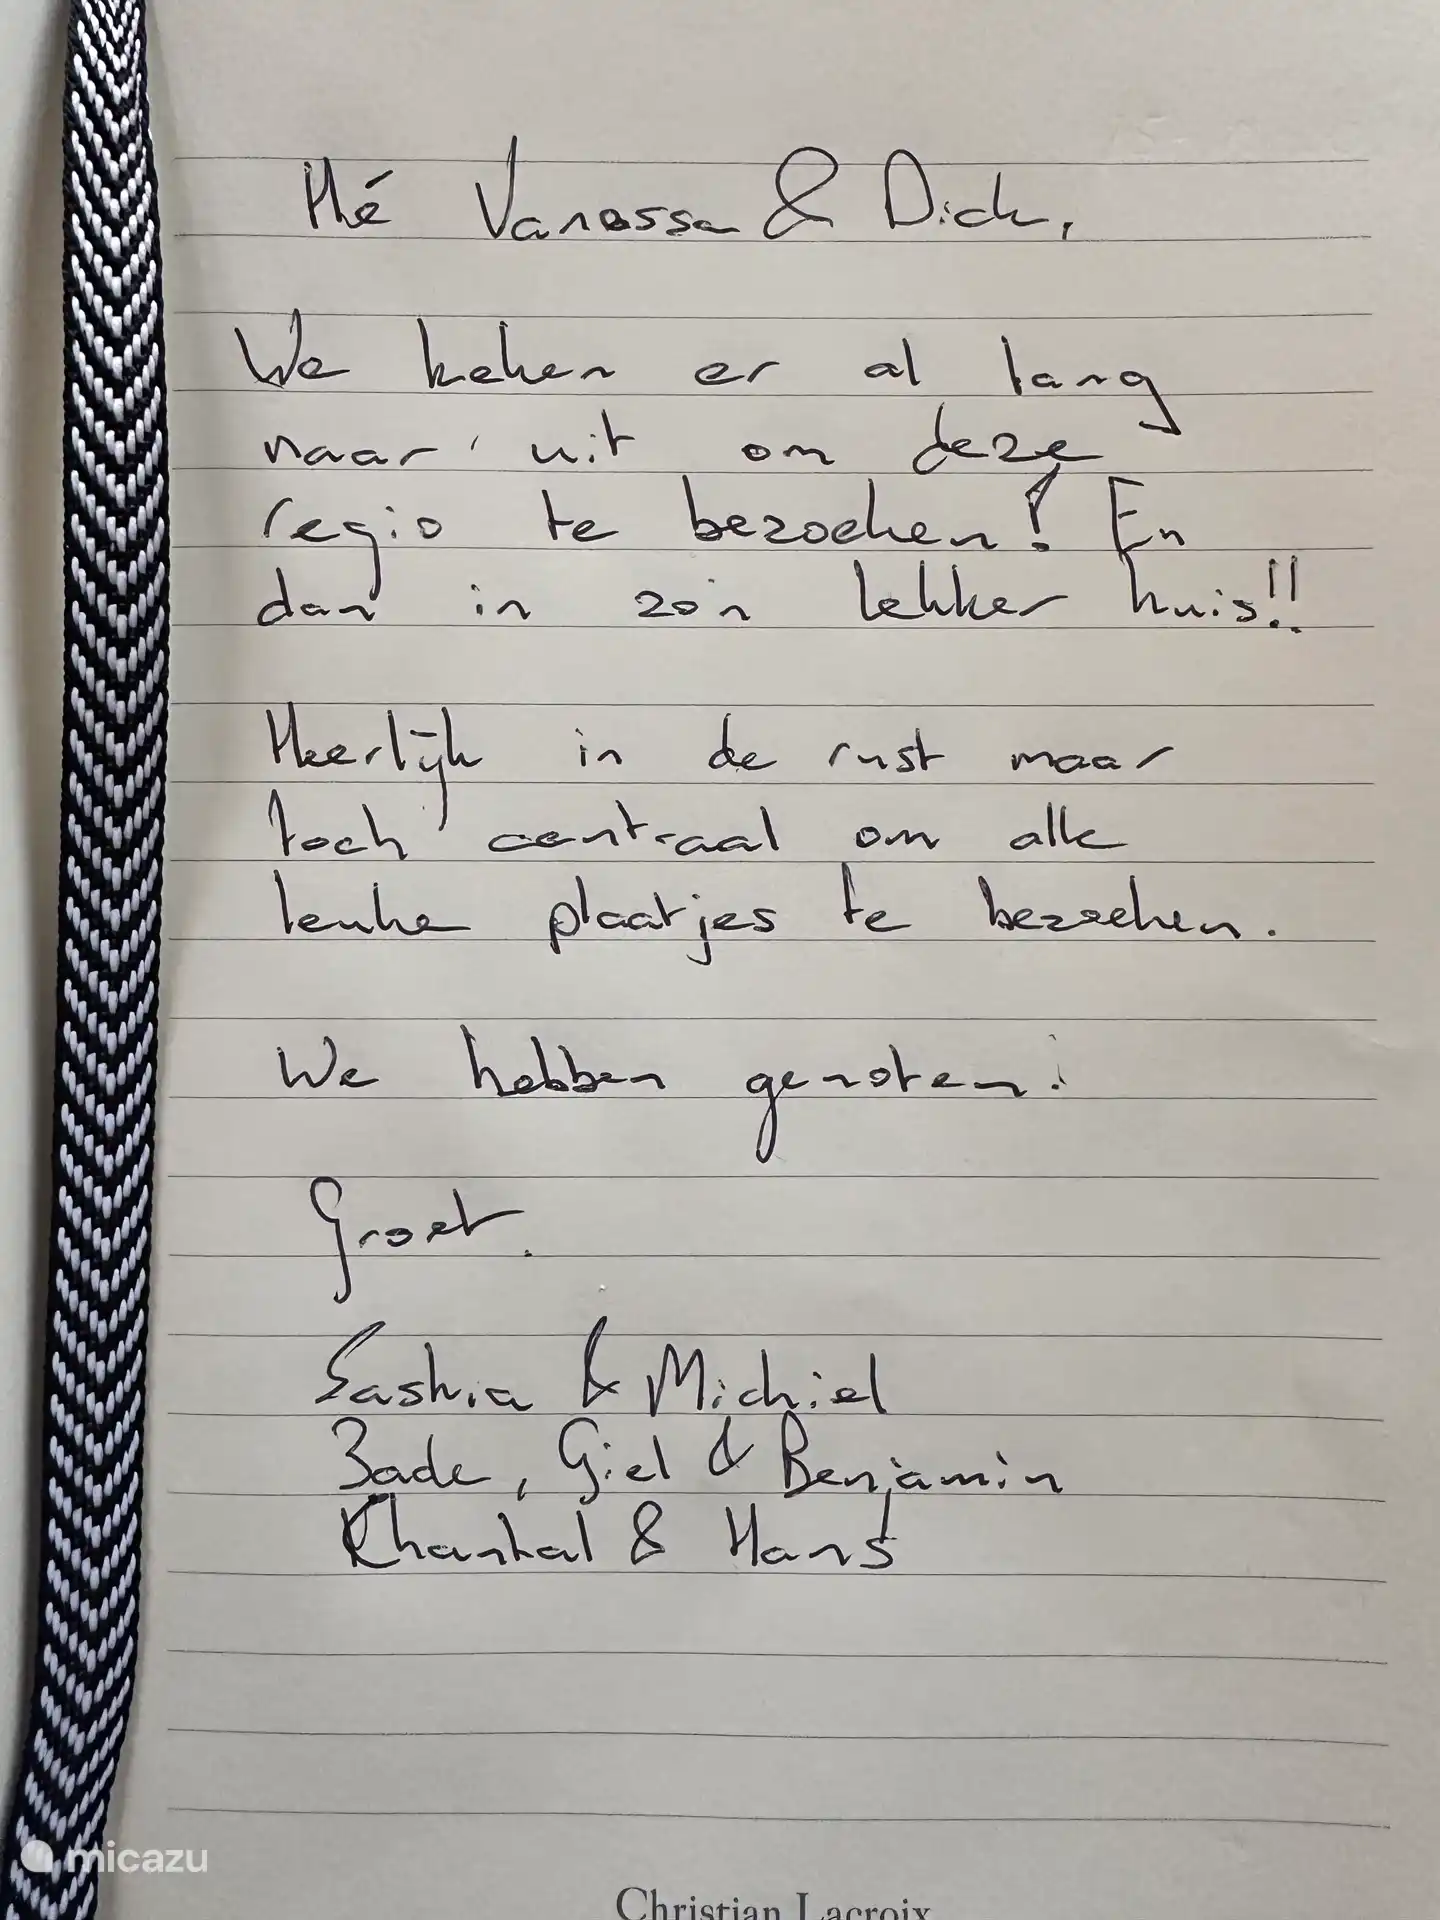 Hé Vanessa & Dick,
We keken er al lang
naar uit om deze
regio te bezoeken! En
dan in zo'n lekker huis!!
Heerlijk in de rust maar
toch centraal om alle
leuke plaatjes te bezoeken.
We hebben genoten!
Groet.
Saskia & Michiel
Jade, Giel & Benjamin
Khantal & Hans
micazu
Christian Lacroix